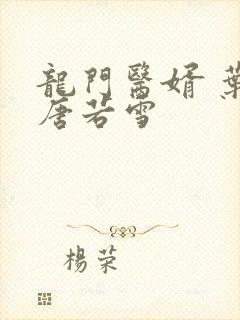 龍門醫婿 葉
唐若雪
楊荣